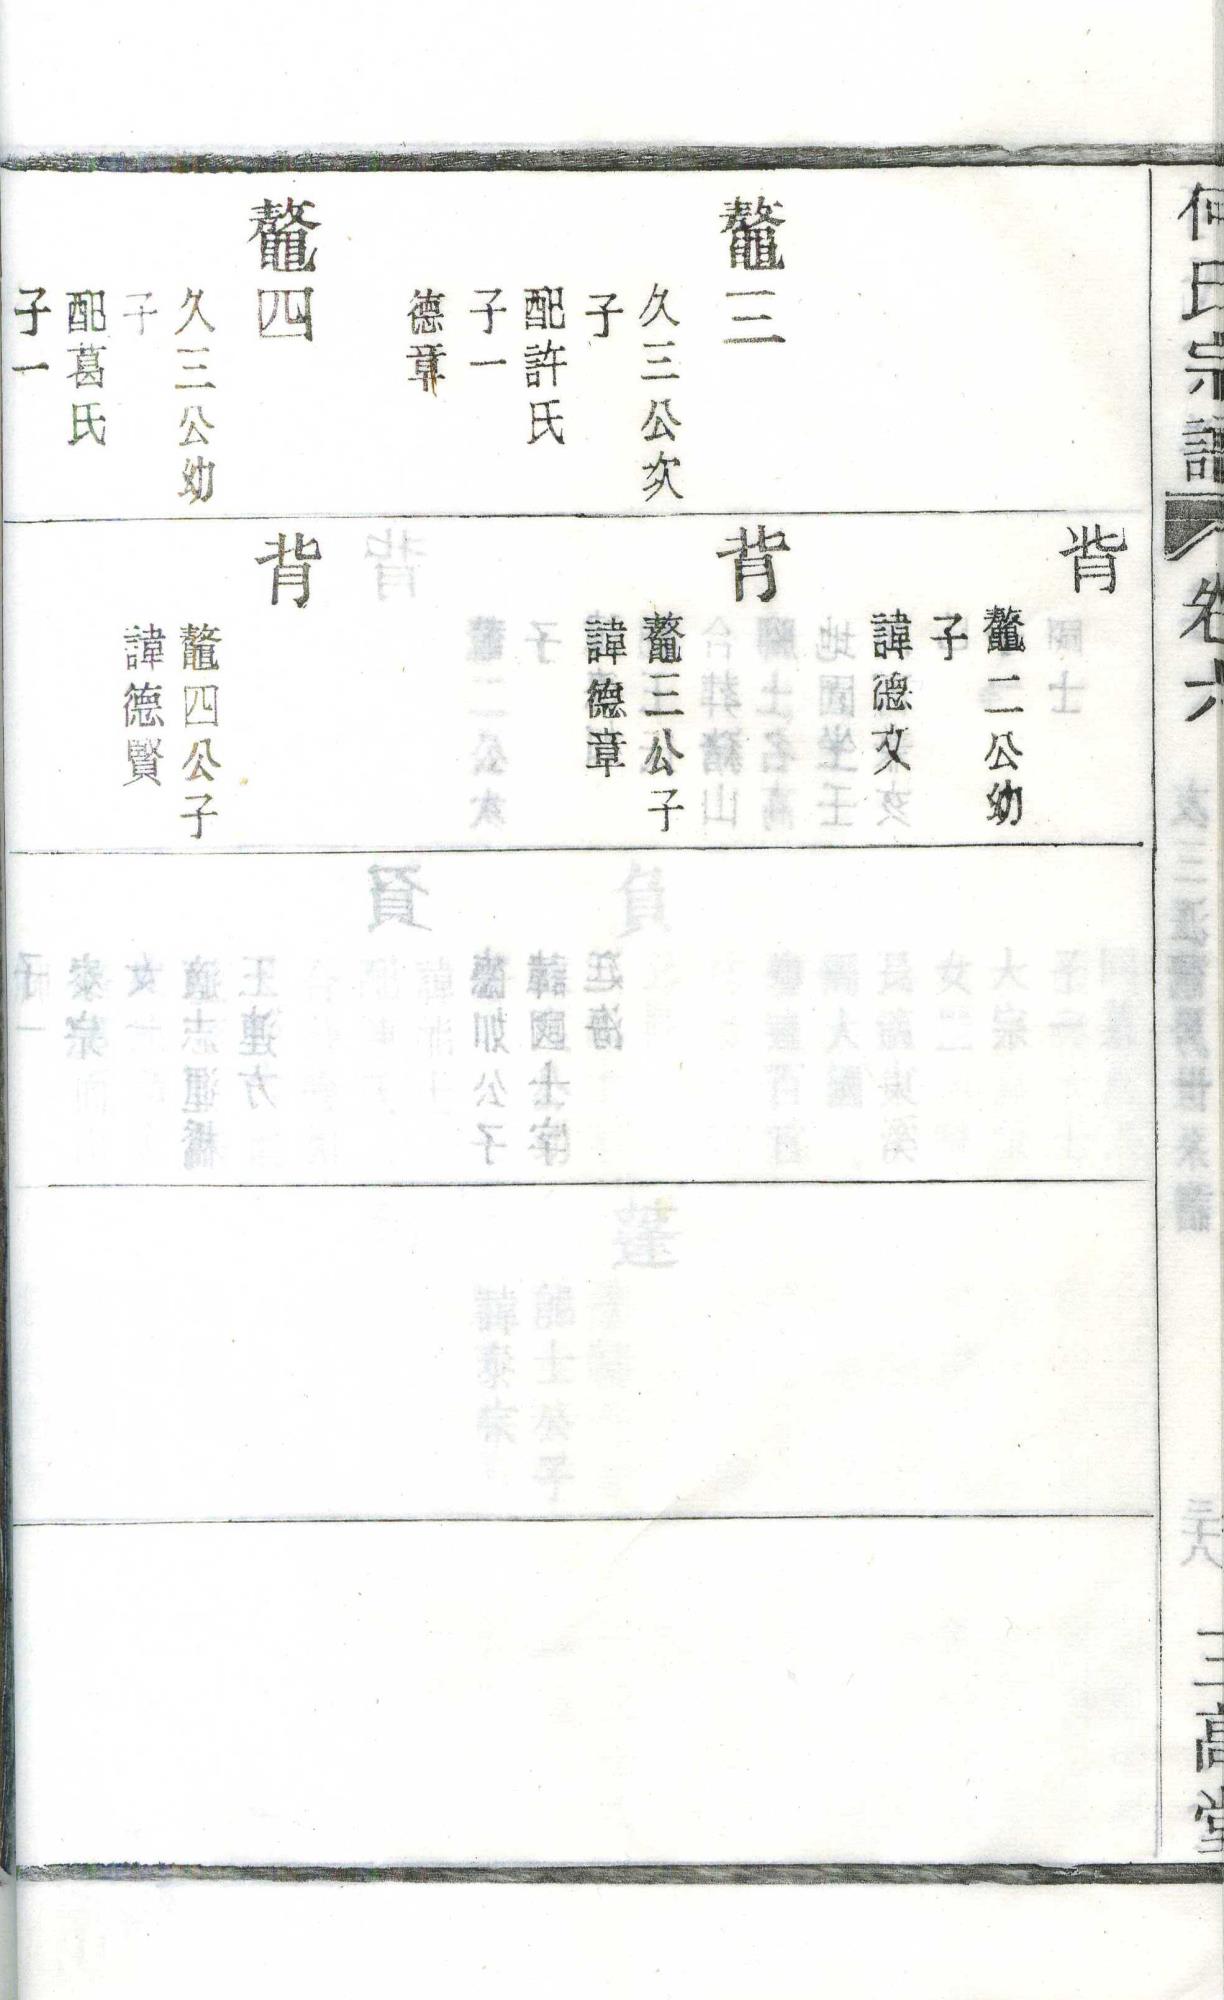 何氏宗譜
卷六
三高堂
鼇三
久三公次
子
配許氏
子一
德章
鼇四
久三公幼
子
配葛氏
子一
背
鼇二公幼
子
諱德文
背
鼇三公子
諱德章
背
鼇四公子
諱德賢